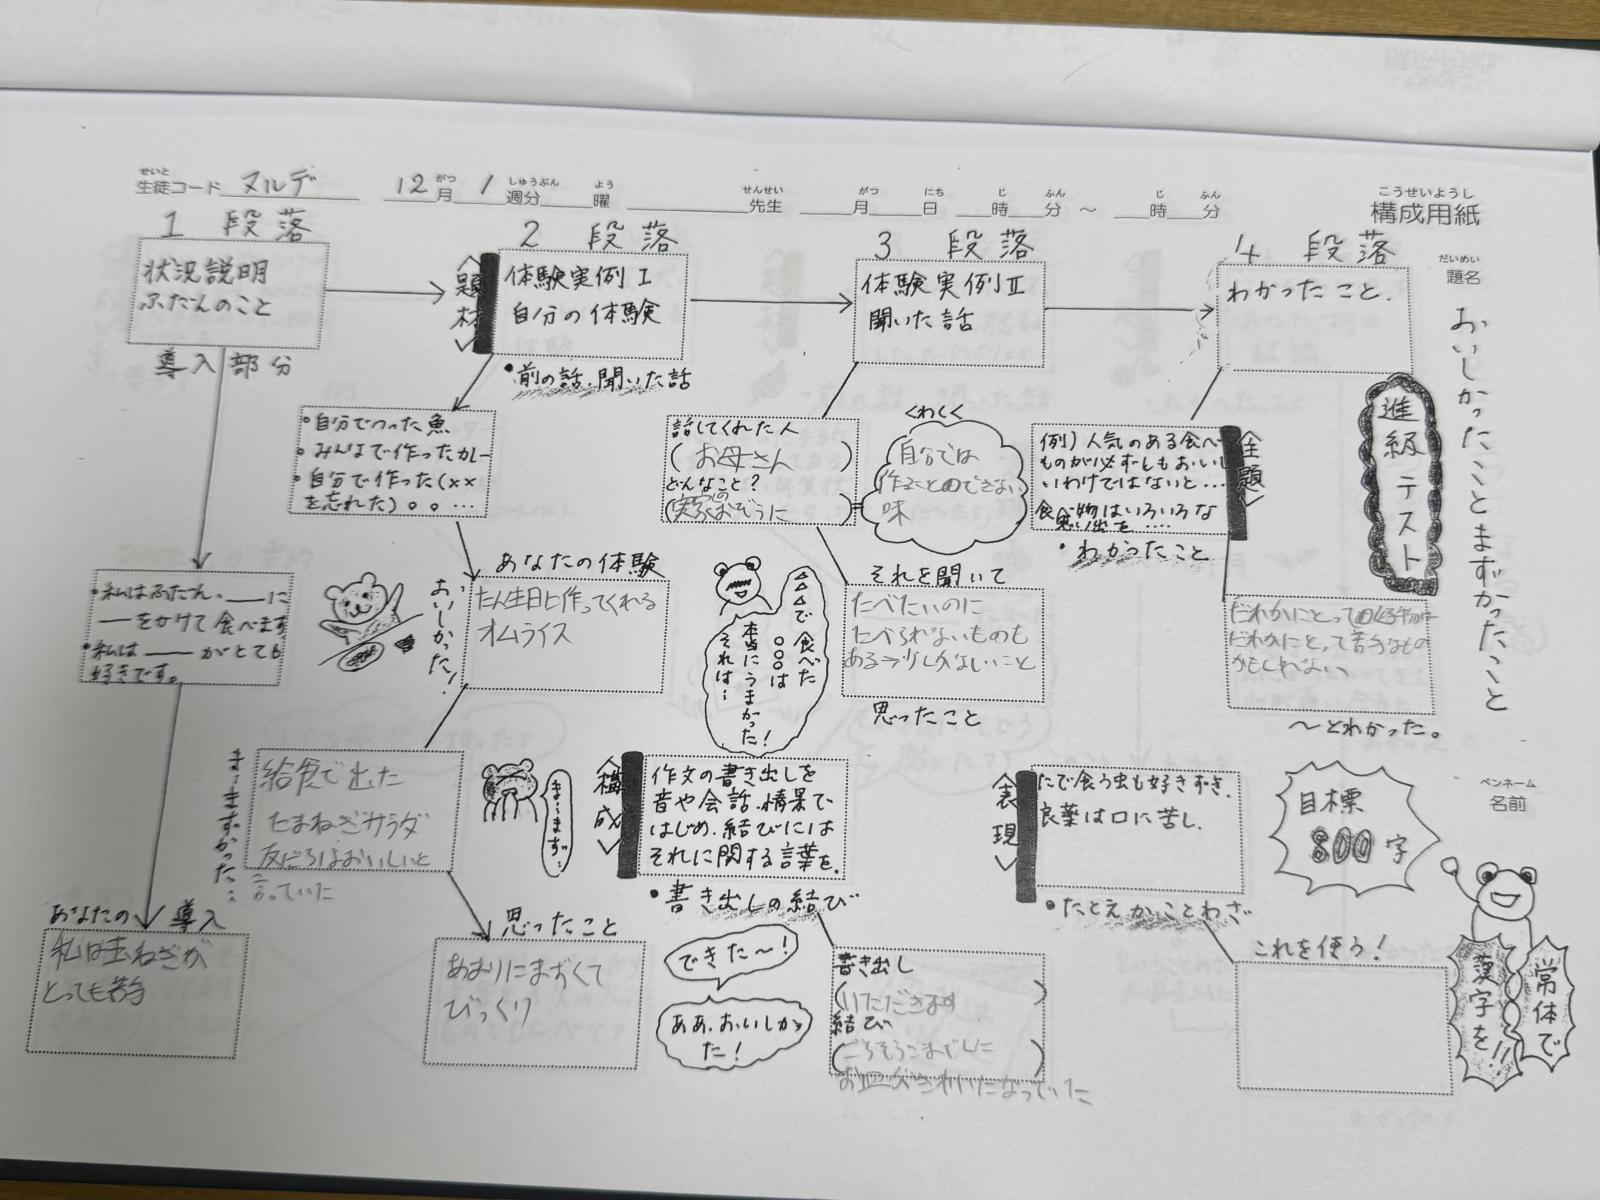 せいと
生徒コード ヌルデ
12月1週分 曜
がつ しゅうぶん よう
せんせい
先生
がつ にち じ ふん じ ふん
月 日 時 分 ~ 時 分
こうせいようし
構成用紙
だいめい
題名
おいしかったことまずかったこと
進級テスト
1 段落
状況説明
ふだんのこと
導入部分
・私はふだん、__に
__をかけて食べます。
・私は__がとても
好きです。
あなたの導入
私は玉ねぎが
とっても苦手
2 段落
<題材>
体験実例Ⅰ
自分の体験
・前の話、聞いた話
・自分でつった魚
・みんなで作ったカレー
・自分で作った(××
を忘れた)。。…
あなたの体験
たん生日に作ってくれる
オムライス
おいしかった!
ま~まずかった…
給食で出た
たまねぎサラダ
友だちはおいしいと
言っていた
ま~まず…
思ったこと
あまりにまずくて
びっくり
3 段落
体験実例Ⅱ
聞いた話
話してくれた人
(お母さん)
どんなこと?
(実家のおぞうに
くわしく
自分では
作ることのできない
味
△△で食べた
○○○は
本当にうまかった!
それは…
それを聞いて
たべたいのに
たべられないものも
ある→少しかなしいこと
思ったこと
<構成>
作文の書き出しを
音や会話、情景で
はじめ、結びには
それに関する言葉を。
・書き出しの結び
できた~!
ああ、おいしかっ
た!
書き出し
(いただきます)
結び
(ごちそうさまでした)
お皿がきれいになっていた
4 段落
わかったこと.
例)人気のある食べ
ものが必ずしもおいし
いわけではないと…
食べ物はいろいろな
思い出を….
<主題>
・わかったこと
だれかにとって好物が
だれかにとって苦手なもの
かもしれない
~とわかった。
<表現>
たで食う虫も好きずき.
良薬は口に苦し.
・たとえかことわざ
これを使う!
目標
800字
ペンネーム
名前
常体で
漢字を!!